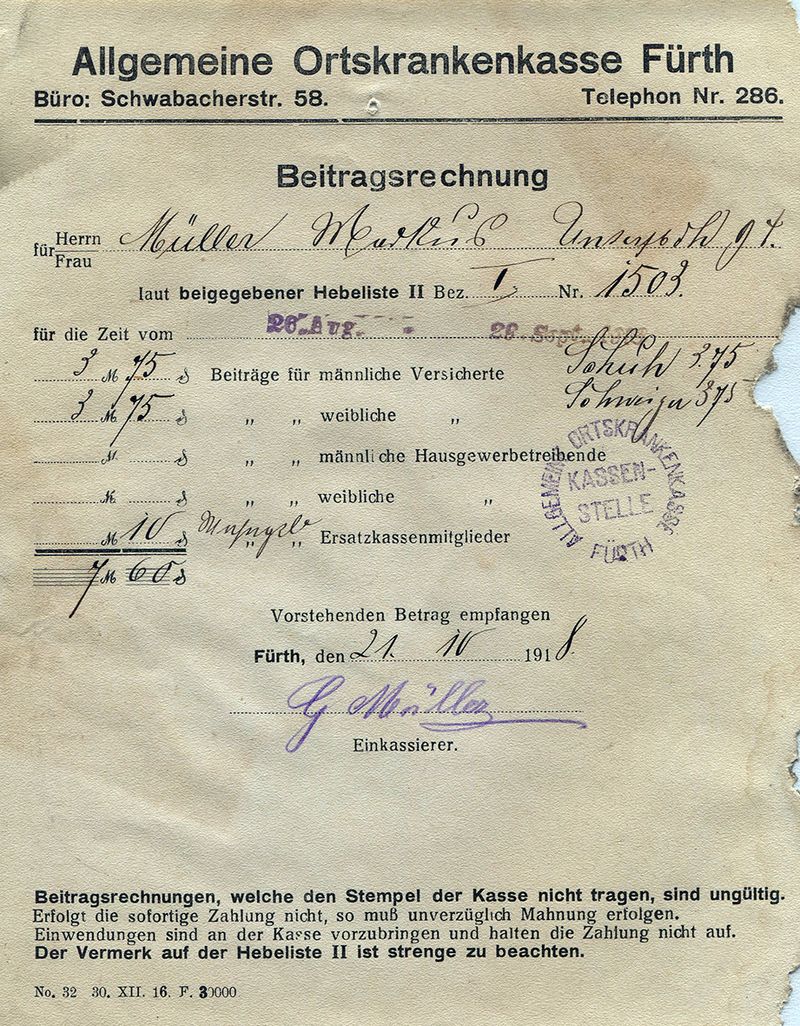 Allgemeine Ortskrankenkasse Fürth
Büro: Schwabacherstr. 58. Telephon Nr. 286.
Beitragsrechnung
für Herrn Frau Müller Markus 94.
laut beigegebener Hebeliste II Bez. I Nr. 1503.
für die Zeit vom 26. Aug. 28 Sept.
3 M 75 ₰ Beiträge für männliche Versicherte Schuh 3.75
3 M 75 ₰ " " weibliche " 375
M ₰ " " männliche Hausgewerbetreibende
M ₰ " " weibliche "
M 10 ₰ " " Ersatzkassenmitglieder
7 M 60 ₰
ALLGEMEINE ORTSKRANKENKASSE
KASSEN-
STELLE
FÜRTH
Vorstehenden Betrag empfangen
Fürth, den 21. 10 1918
G Müller
Einkassierer.
Beitragsrechnungen, welche den Stempel der Kasse nicht tragen, sind ungültig.
Erfolgt die sofortige Zahlung nicht, so muß unverzüglich Mahnung erfolgen.
Einwendungen sind an der Kasse vorzubringen und halten die Zahlung nicht auf.
Der Vermerk auf der Hebeliste II ist strenge zu beachten.
No. 32 30. XII. 16. F. 30000